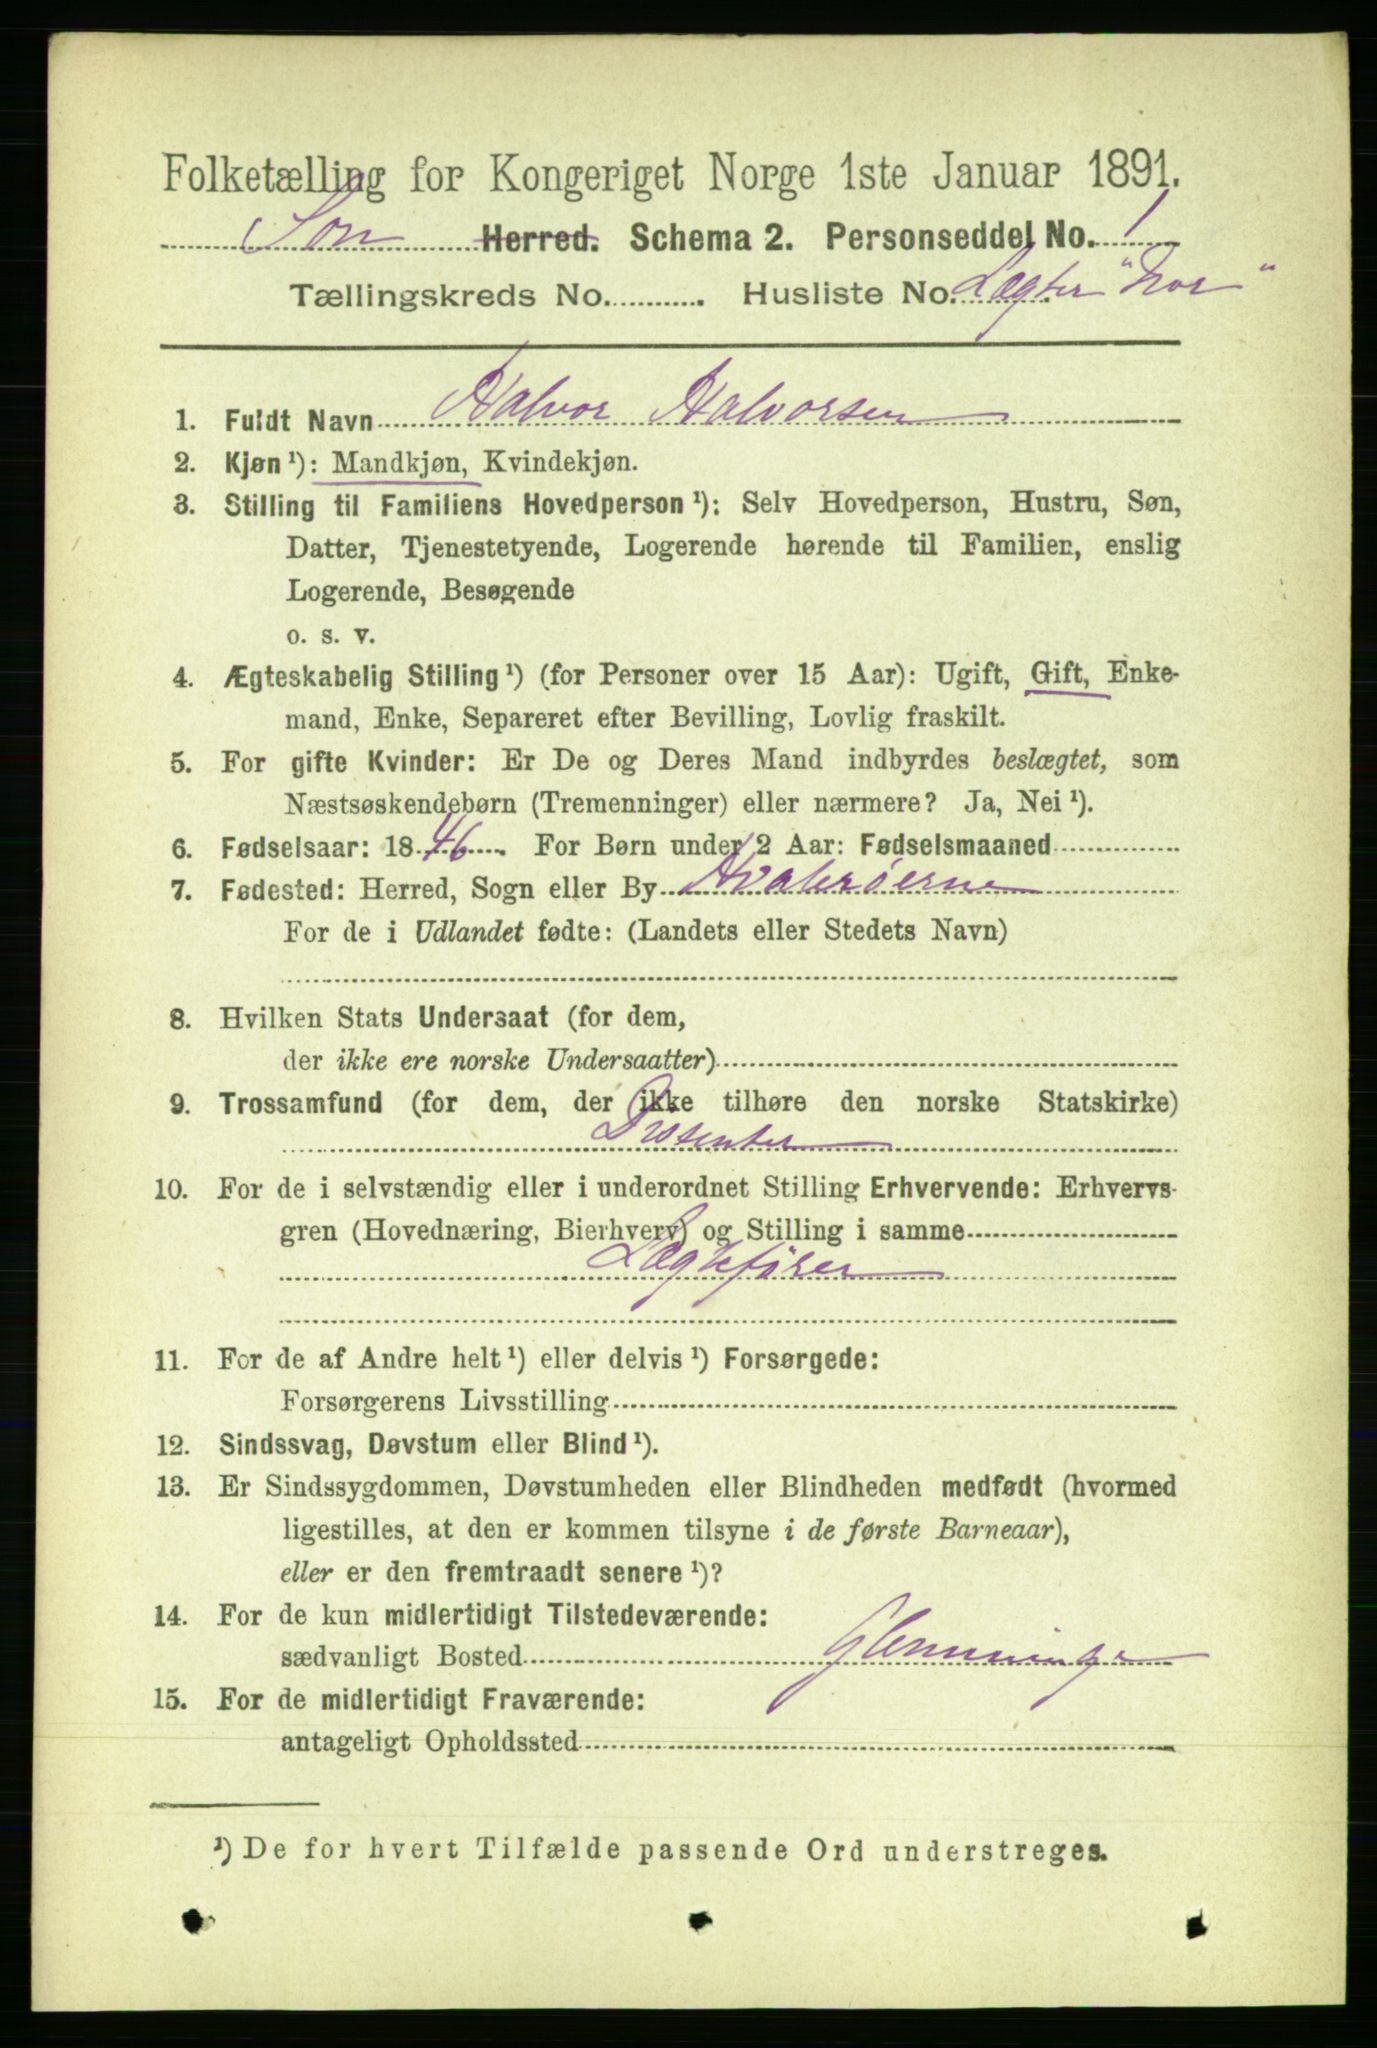 Folketælling for Kongeriget Norge 1ste Januar 1891.
Son Herred. Schema 2. Personseddel No. 1
Tællingskreds No. Husliste No. Lægter "Nor"
1. Fuldt Navn Halvor Halvorsen
2. Kjøn ¹): Mandkjøn, Kvindekjøn.
3. Stilling til Familiens Hovedperson ¹): Selv Hovedperson, Hustru, Søn,
Datter, Tjenestetyende, Logerende hørende til Familien, enslig
Logerende, Besøgende
o. s. v.
4. Ægteskabelig Stilling ¹) (for Personer over 15 Aar): Ugift, Gift, Enke-
mand, Enke, Separeret efter Bevilling, Lovlig fraskilt.
5. For gifte Kvinder: Er De og Deres Mand indbyrdes beslægtet, som
Næstsøskendebørn (Tremenninger) eller nærmere? Ja, Nei ¹).
6. Fødselsaar: 1846. For Børn under 2 Aar: Fødselsmaaned
7. Fødested: Herred, Sogn eller By Hvalerøerne
For de i Udlandet fødte: (Landets eller Stedets Navn)
8. Hvilken Stats Undersaat (for dem,
der ikke ere norske Undersaatter)
9. Trossamfund (for dem, der ikke tilhøre den norske Statskirke)
Disenter
10. For de i selvstændig eller i underordnet Stilling Erhvervende: Erhvervs-
gren (Hovednæring, Bierhverv) og Stilling i samme
Lægtefører
11. For de af Andre helt ¹) eller delvis ¹) Forsørgede:
Forsørgerens Livsstilling
12. Sindssvag, Døvstum eller Blind ¹).
13. Er Sindssygdommen, Døvstumheden eller Blindheden medfødt (hvormed
ligestilles, at den er kommen tilsyne i de første Barneaar),
eller er den fremtraadt senere ¹)?
14. For de kun midlertidigt Tilstedeværende:
sædvanligt Bosted Glemminge
15. For de midlertidigt Fraværende:
antageligt Opholdssted
¹) De for hvert Tilfælde passende Ord understreges.